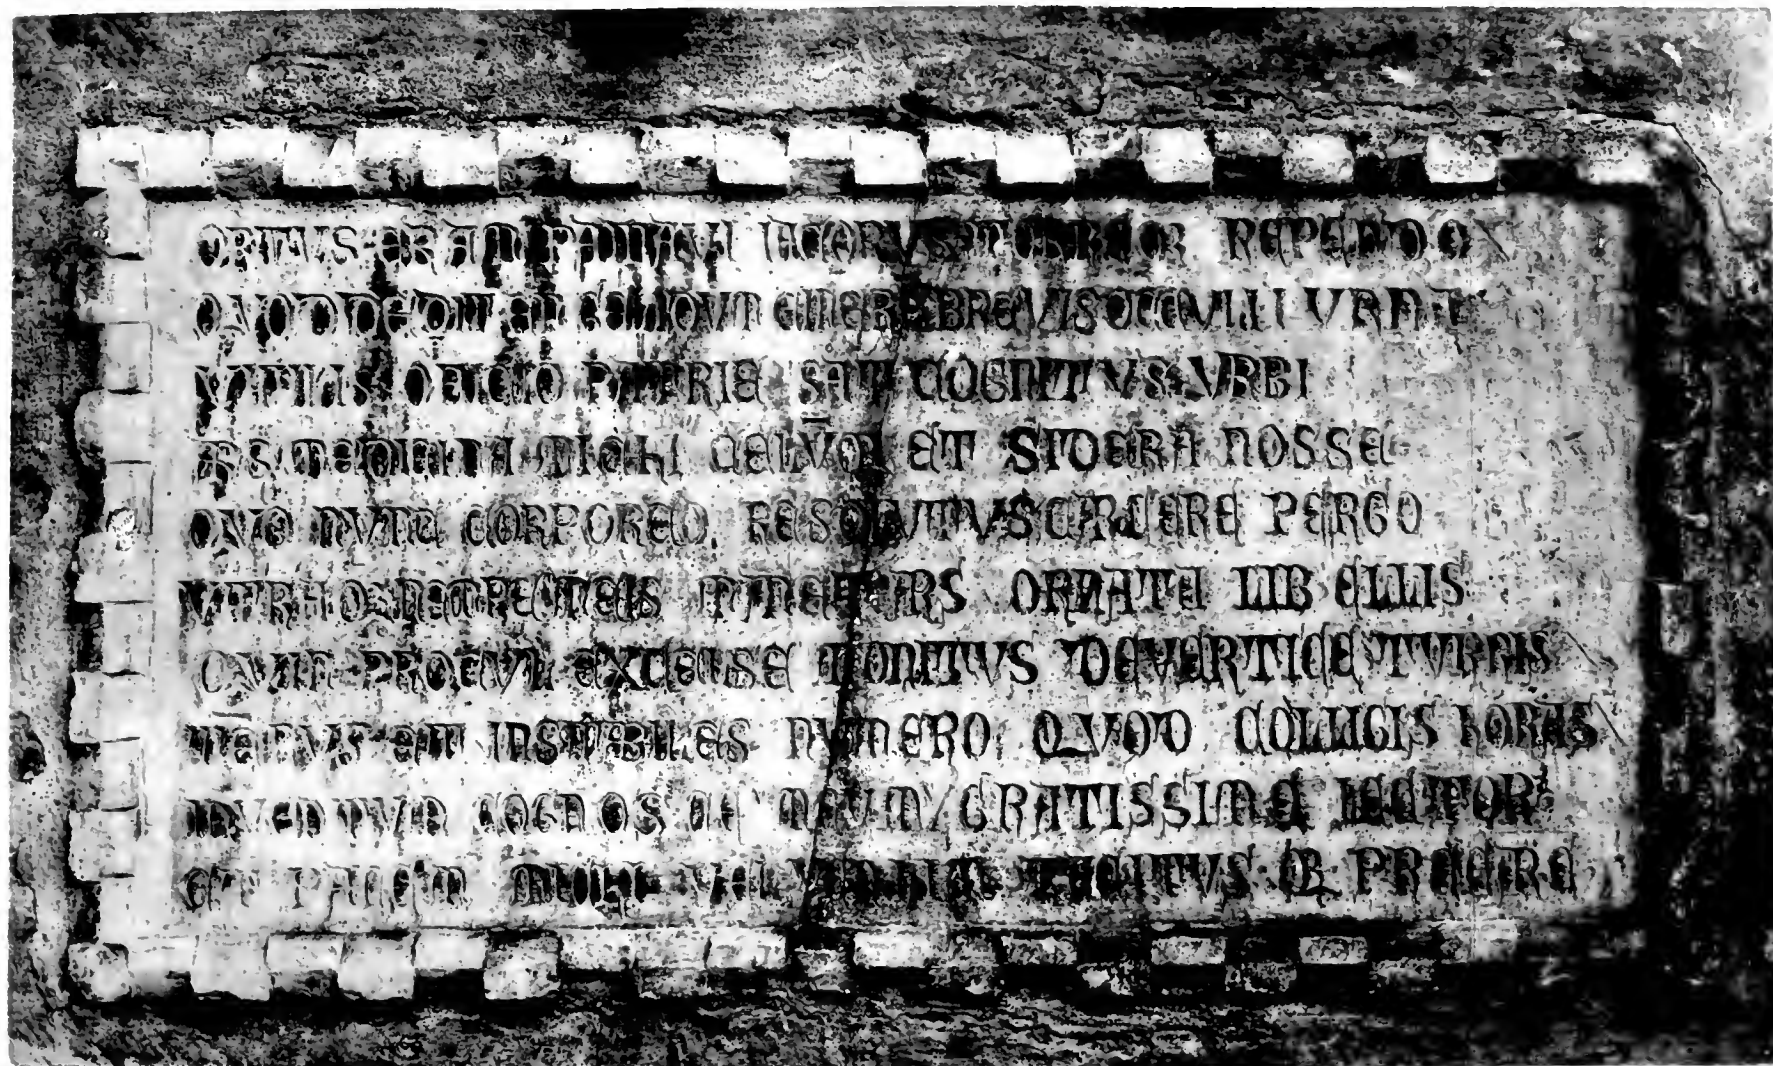 ORTVS ERAM PATAVI IACOBVS TERREQ REPENDO
QVOD DEDIT ET CINERES BREVIS OCCVLIT VRNA
VTILIS OFICIO PATRIE SAT COGNITVS VRBI
ARS MEDICINA MICHI CELVQ ET SIDERA NOSSE
QVO NVNC CORPOREO RESOLVTVS CARCERE PERGO
VTRAQ NEMPE MEIS MANET ARS ORNATA LIBELLIS
QVIN PROCVL EXCELSE MONITVS DE VERTICE TVRRIS
TEPVS ET INSTABILES NVMERO QVOD COLLIGIS HORAS
INVENTVM COGNOSCE MEVM GRATISSIME LECTOR
ET PACEM MICHI VEL VENIAM TACITVSQ PRECARE